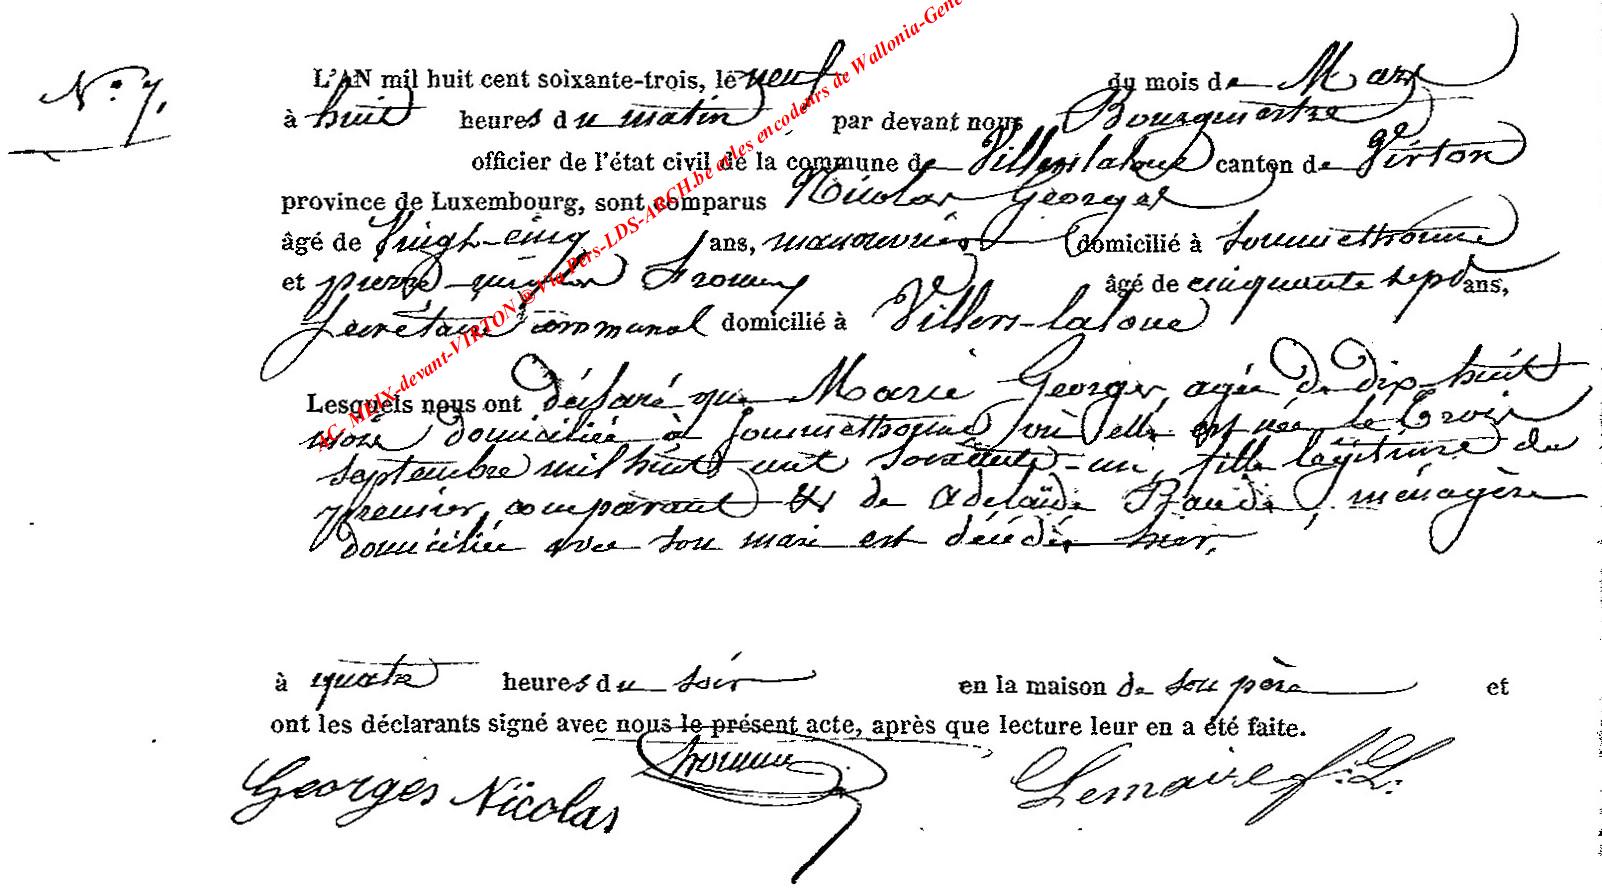 N° 7.
L'AN mil huit cent soixante-trois, le neuf du mois de Mars
à huit heures du matin par devant nous Bourgmestre
officier de l'état civil de la commune de Villers-laloue canton de Virton
province de Luxembourg, sont comparus Nicolas Georges
âgé de vingt-cinq ans, manouvrier domicilié à Sommethonne
et pierre âgé de cinquante sept ans,
Secrétaire communal domicilié à Villers-laloue
Lesquels nous ont déclaré que Marie Georges, agée de dix-huit
mois domiciliée à Sommethonne où elle est née le trois
septembre mil huit cent soixante-un, fille légitime de
premier comparant & de Adelaïde Baudé, ménagère
domiciliée avec son mari est décédée hier,
à quatre heures du soir en la maison de son père et
ont les déclarants signé avec nous le présent acte, après que lecture leur en a été faite.
Georges Nicolas Lemaire f. L.
AC- MEIX-devant-VIRTON © Via Pers-LDS-ARCH.be et les encodeurs de Wallonia-Gene